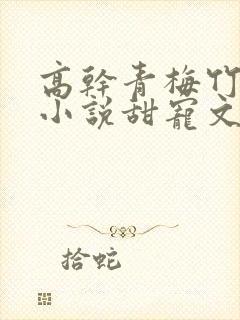 高幹青梅竹
小說甜寵文
拾蛇